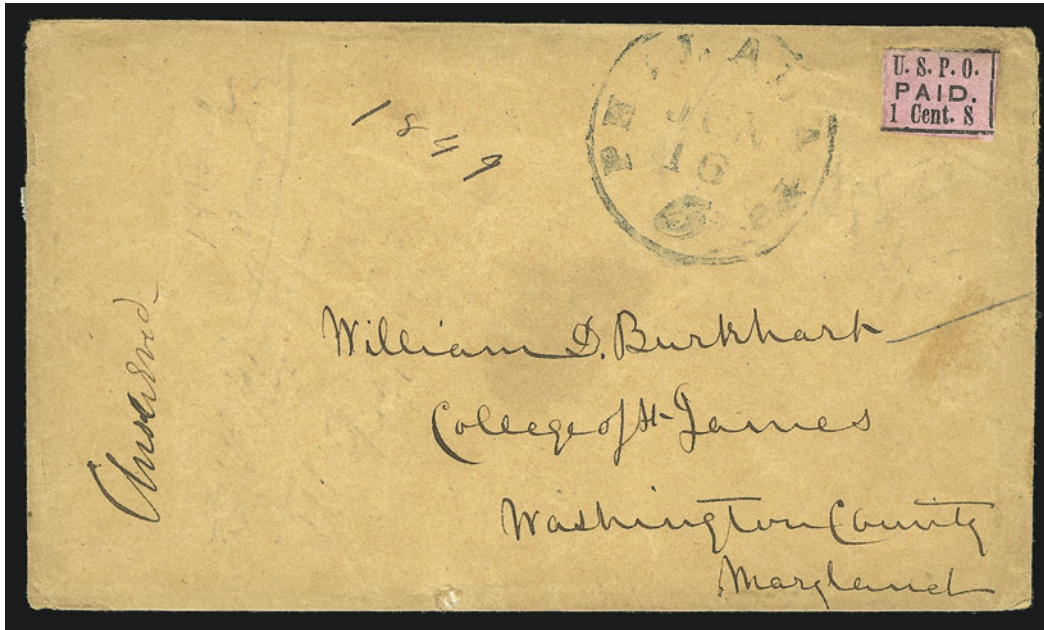 U. S. P. O.
PAID.
1 Cent. S
PHILADA
JUN
16
5
1849
Answered
William D. Burkhart
College of St James
Washington County
Maryland